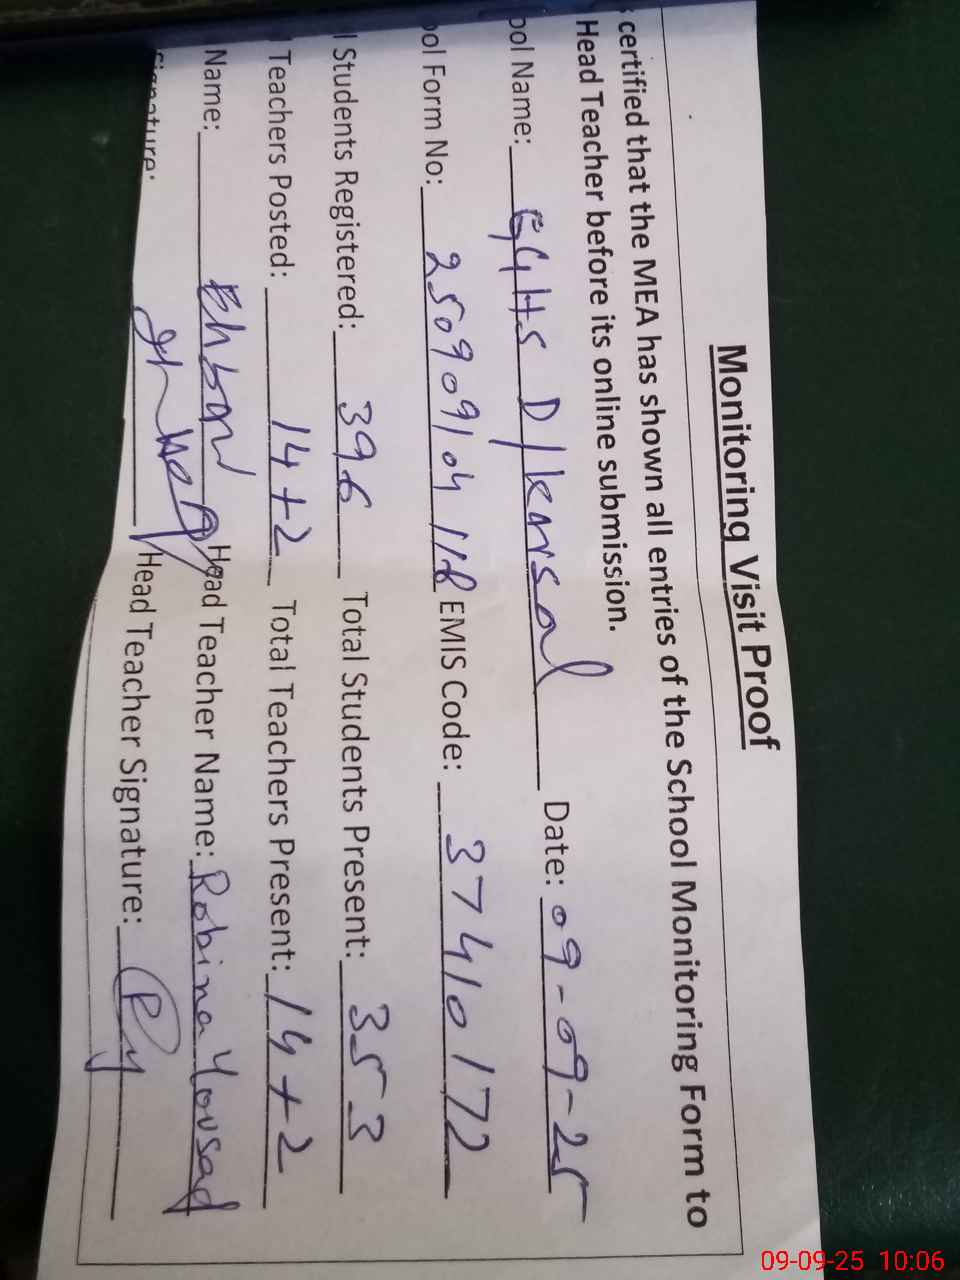 Monitoring Visit Proof
certified that the MEA has shown all entries of the School Monitoring Form to
Head Teacher before its online submission.
ool Name: GGHS D/ Date: 09-09-25
ool Form No: EMIS Code: 37410172
l Students Registered: 396 Total Students Present: 353
Teachers Posted: 14+2 Total Teachers Present: 14+2
Name: Head Teacher Name: Robina Yousaf
Signature: Head Teacher Signature: Ry
09-09-25 10:06